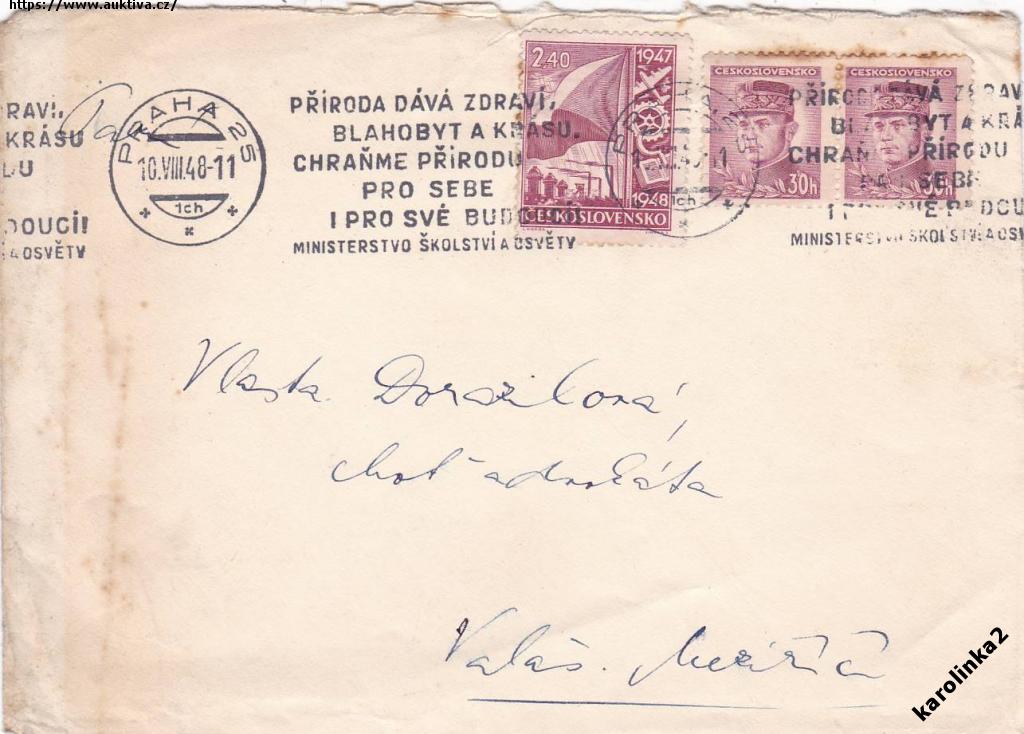 https://www.auktiva.cz/
RAVÍ,
KRÁSU
DU
DOUCÍ!
A OSVĚTY
PRAHA 25
10.VIII.48-11
1ch
PŘÍRODA DÁVÁ ZDRAVÍ,
BLAHOBYT A KRÁSU.
CHRAŇME PŘÍRODU
PRO SEBE
I PRO SVÉ BUDOUCÍ!
MINISTERSTVO ŠKOLSTVÍ A OSVĚTY
2,40 1947
1948
ČESKOSLOVENSKO
ČESKOSLOVENSKO
30h
ČESKOSLOVENSKO
30h
PŘÍRODA DÁVÁ ZDRAV
BLAHOBYT A KRÁ
CHRAŇME PŘÍRODU
SEBE
I PRO SVÉ BUDOU
MINISTERSTVO ŠKOLSTVÍ A OSV
Vlasta Doražilová,
choť advokáta
Valaš. Meziříčí
karolinka2